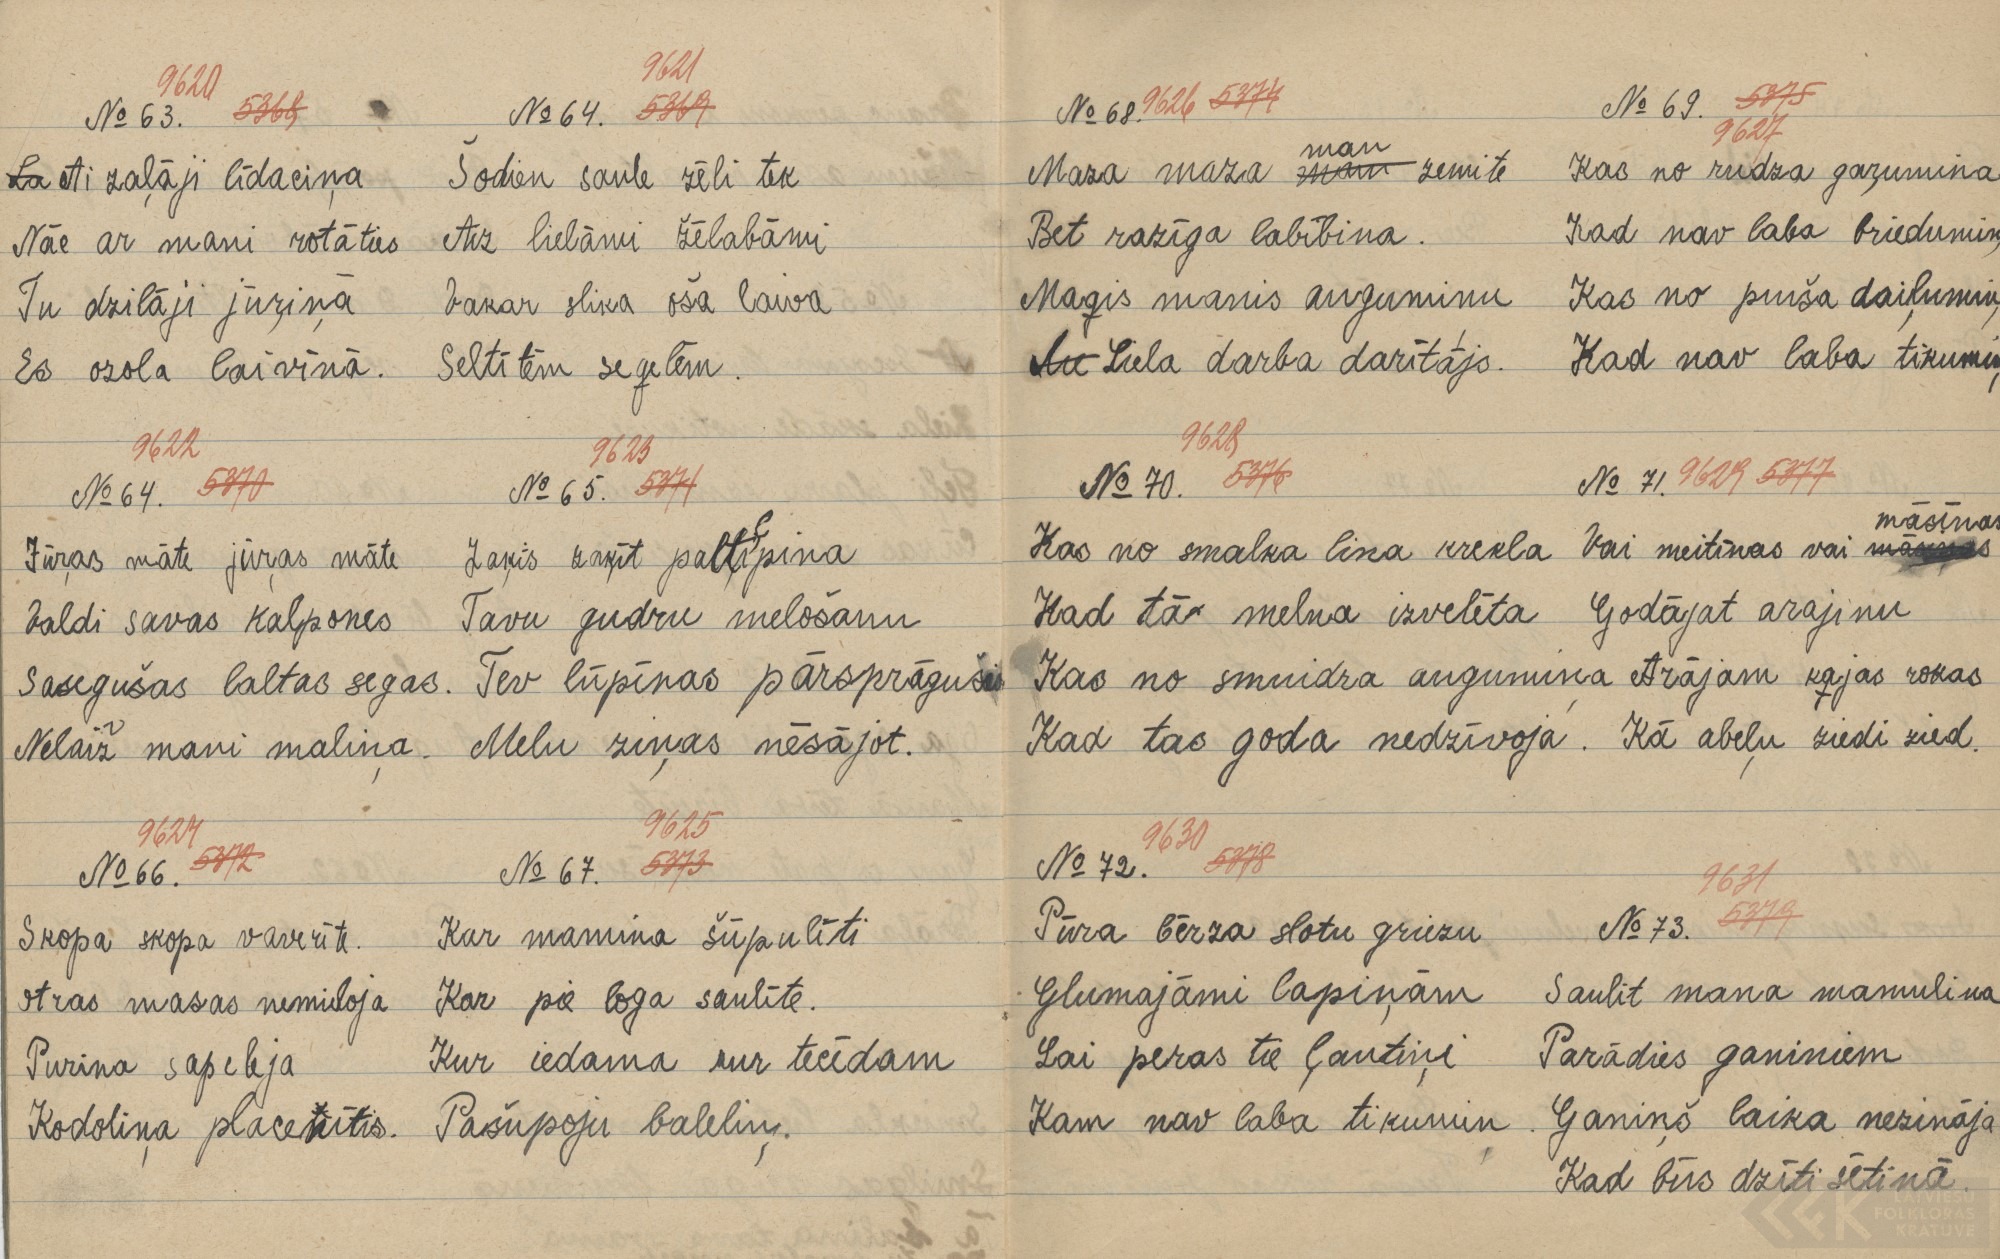 9620
No 63. 5368
La Ai zaļāji līdaciņa
Nāc ar mani rotāties
Tu dziļāji jūŗiņā
Es ozola laiviņā.
9621
No 64. 5369
Šodien saule zēli tek
Aiz lielāmi žēlabāmi
Vakar slika oša laiva
Seltītēm seģelēm.
9622
No 64. 5370
Jūŗas māte jūŗas māte
Valdi savas kalpones
Sasegušas baltas segas.
Nelaiž mani maliņa.
9623
No 65. 5371
Zaķis zaķīt
Tavu gudru melošanu
Tev lūpīnas pārsprāgušas
Melu ziņas nēsājot.
9624
No 66. 5372
Skopa skopa vaverīte.
Otras masas nemieloja
Purina sapeleja
Kodoliņa placenītis.
9625
No 67. 5373
Kar mamina šūpulīti
Kar pie loga saulīte.
Kur iedama kur tecēdam
Pašūpoju baleliņ.
No 68. 9626 5374
man
Maza maza mam zemite
Bet razīga labībina.
Maģis manis auguminu
Liela darba darītājs.
No 69. 5375
9627
Kas no rudza gaŗumina
Kad nav laba briedumiņ
Kas no puiša daiļumiņ,
Kad nav laba tikumiņ
9628
No 70. 5376
Kas no smalka lina krekla
Kad tā melna izvelēta
Kas no smuidra augumiņa
Kad tas goda nedzīvoja.
No 71. 9629 5377
māsīnas
Vai meitīnas vai māsiņas
Godājat arajinu
Arājam kājas rokas
Kā abeļu ziedi zied.
9630
No 72. 5378
Pūra bērza slotu griezu
Glumajāmi lapiņām
Lai peras tie ļautiņi
Kam nav laba tikumiņ.
9631
5379
No 73.
Saulīt mana mamulina
Parādies ganiniem
Ganiņš laika nezināja
Kad būs dzīti sētinā.
LATVIEŠU
FOLKLORAS
KRĀTUVE